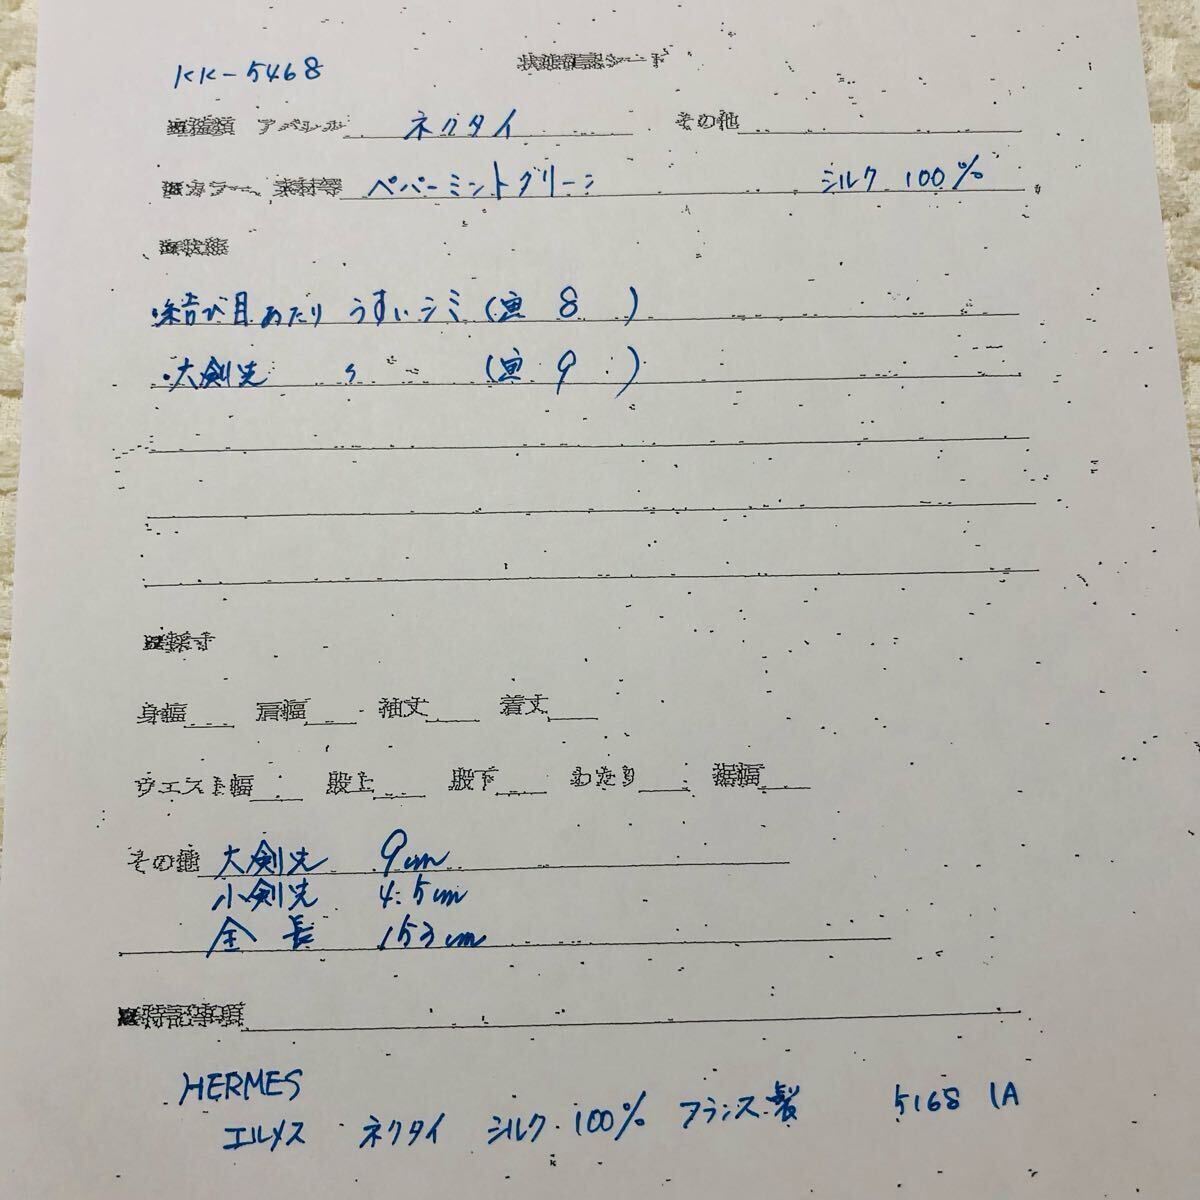 KK-5468
状態確認シート
※種類 アパレル ネクタイ その他
※カラー、素材等 ペパーミントグリーン シルク 100%
※状態
・結び目あたり うすいシミ ( 8 )
・大剣先 〃 ( 9 )
※採寸
身幅 肩幅 袖丈 着丈
ウエスト幅 股上 股下 わたり 裾幅
その他 大剣先 9cm
小剣先 4.5cm
全長 153cm
※特記事項
HERMES
エルメス ネクタイ シルク 100% フランス製 5168 IA